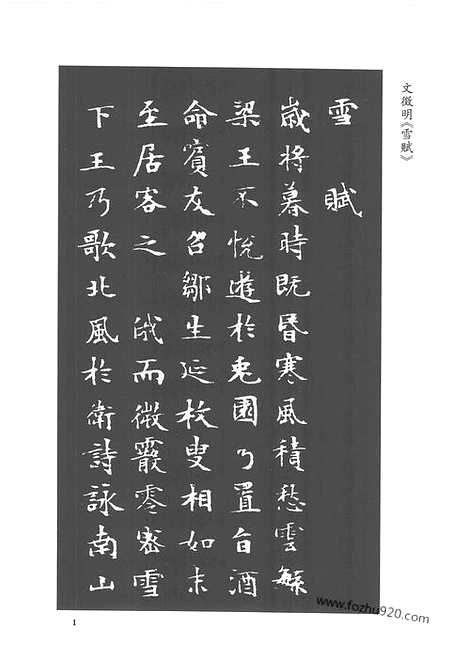 文徵明《雪赋》
雪賦
歲將暮時既昏寒風積愁雲繁
梁王不悅遊於兔園乃置旨酒
命賓友召鄒生延枚叟相如末
至居客之 俄而微霰零密雪
下王乃歌北風於衛詩詠南山
www.fozhu920.com
1